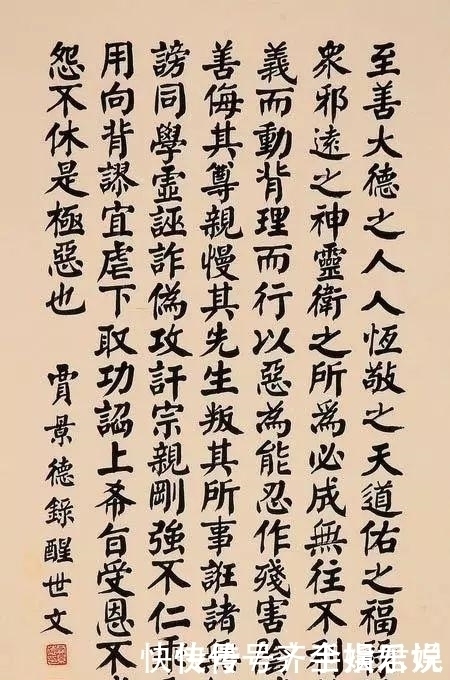 至善大德之人人恆敬之天道佑之福
衆邪遠之神靈衛之所爲必成無往不利
義而動背理而行以惡為能忍作殘害
善侮其尊親慢其先生叛其所事誑諸
謗同學虛誣詐偽攻訐宗親剛強不仁
用向背謬宜虐下取功諂上希旨受恩不
怨不休是極惡也
賈景德錄醒世文